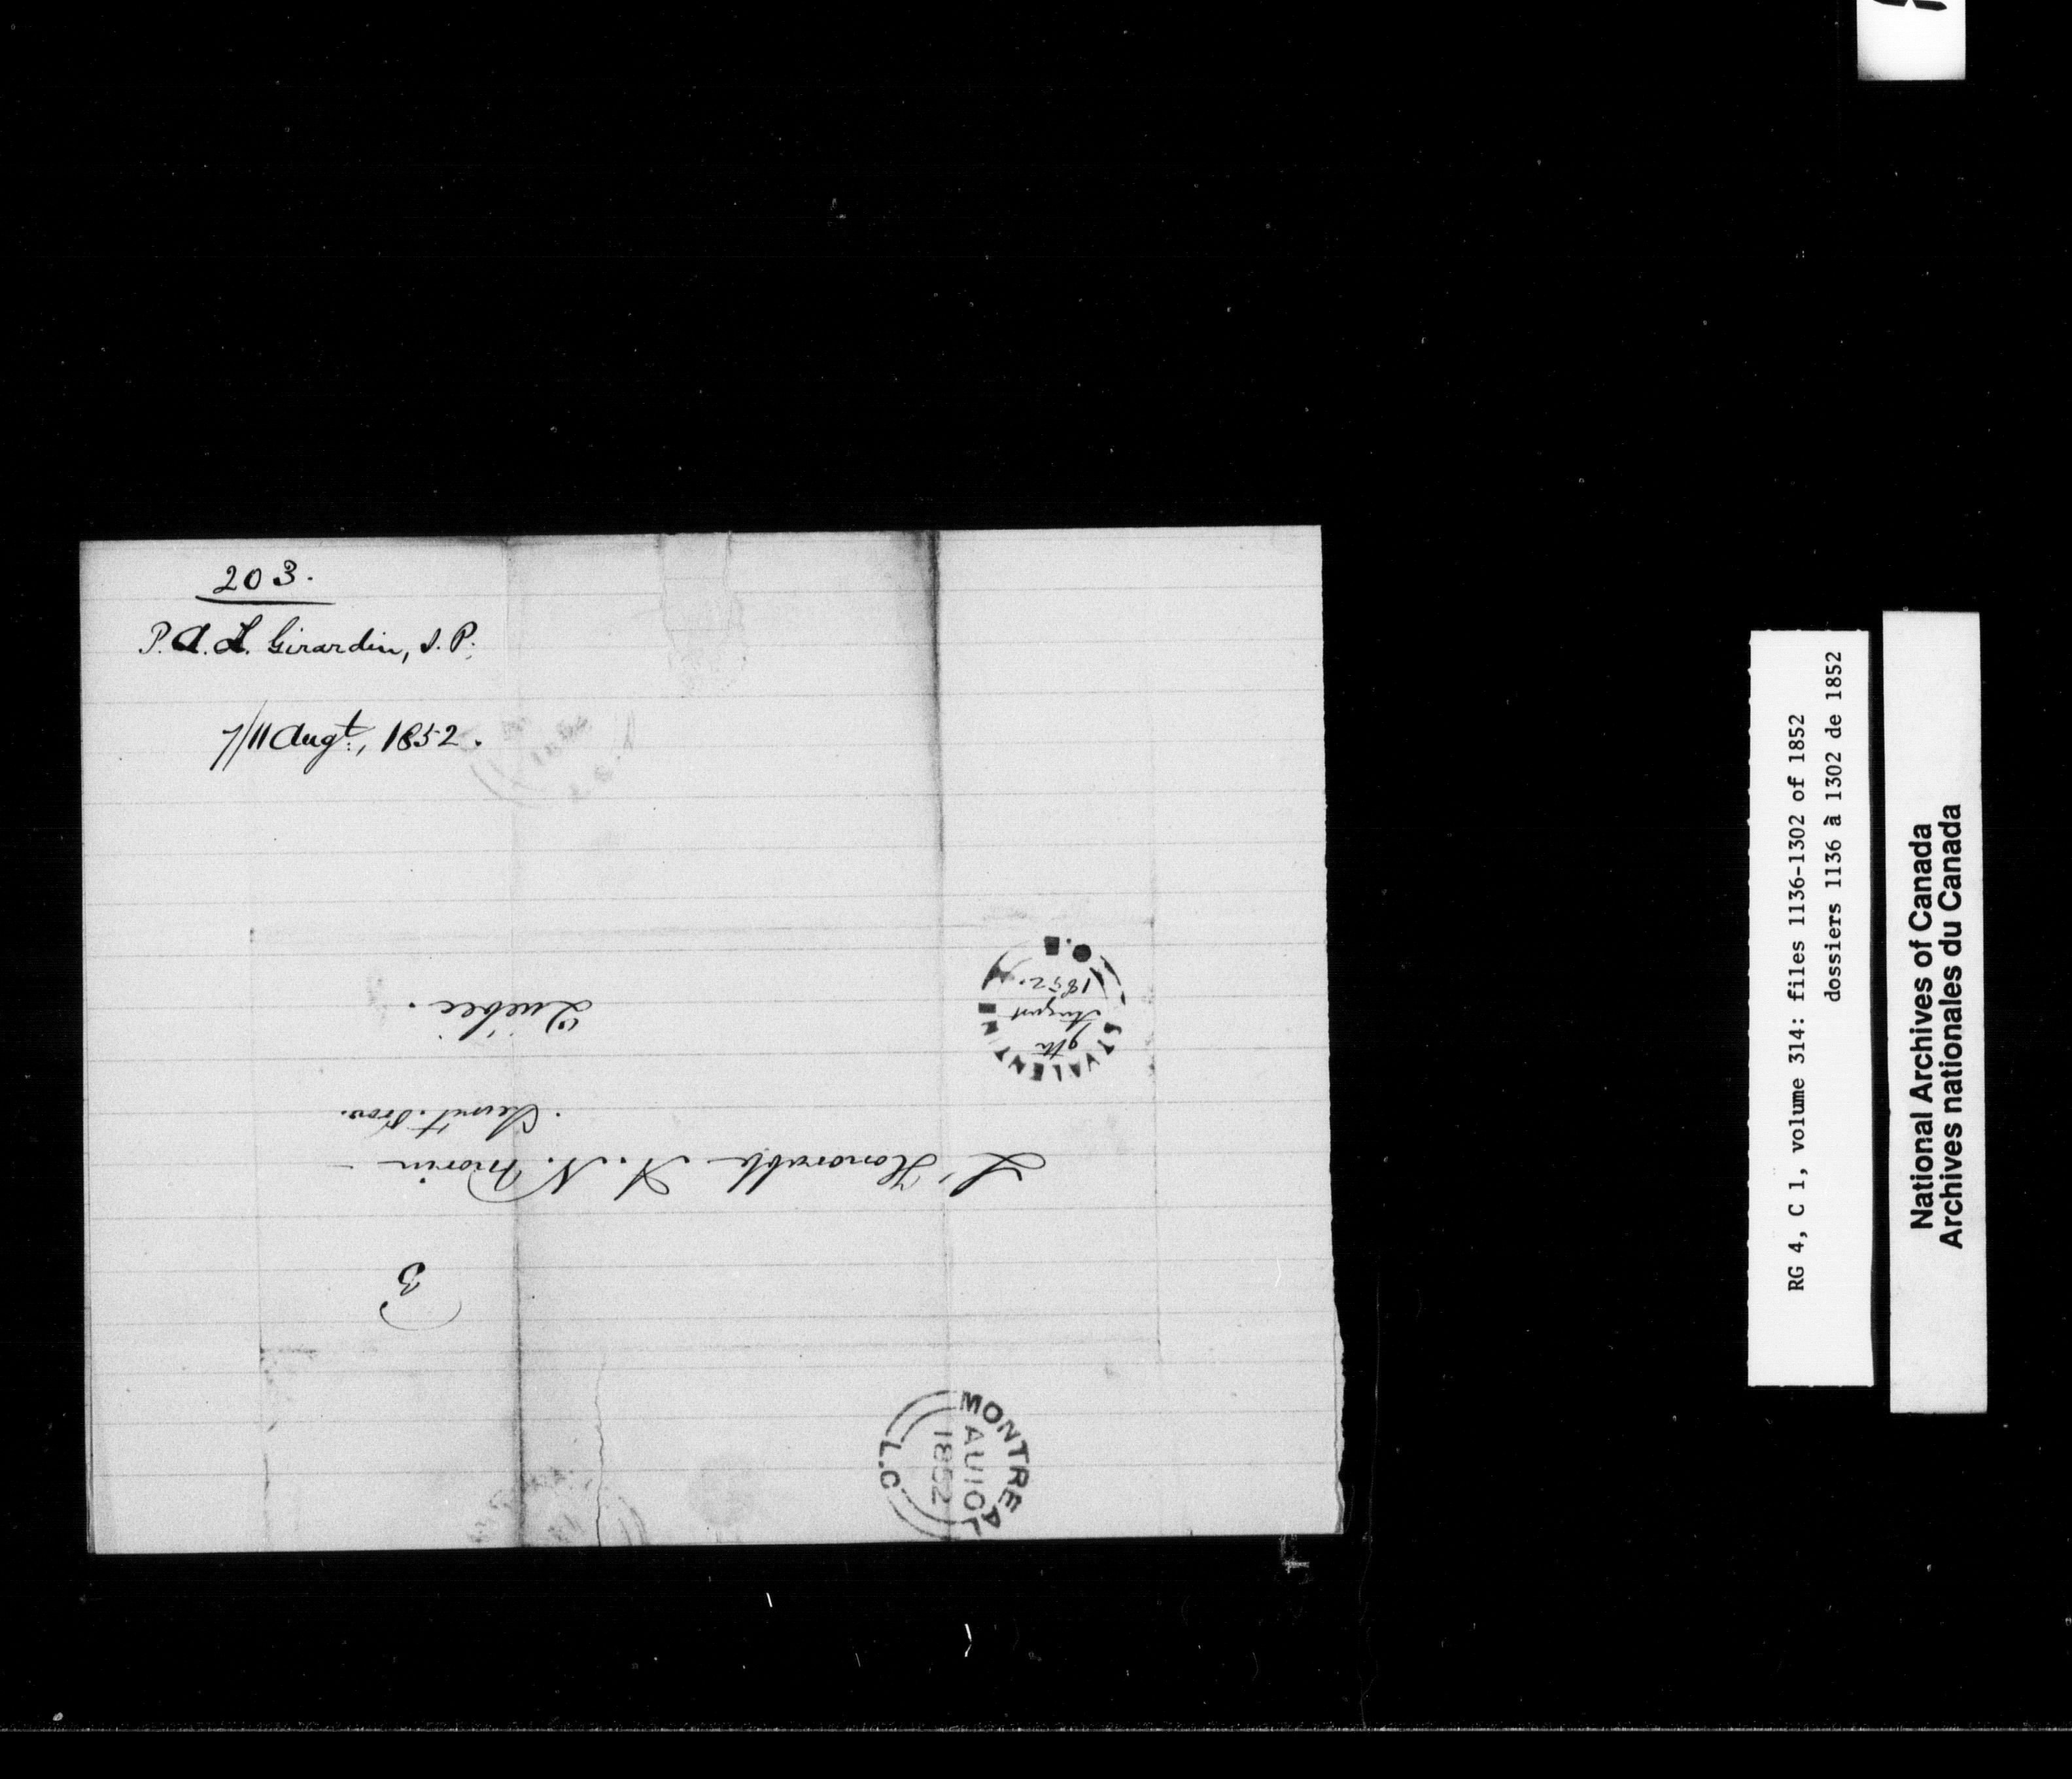 203.
P. A. L. Girardin, J. P.
7/11 Augt., 1852.
L'Honorable A. N. Morin
Secrét. Prov.
Québec.
3
ST VALENTIN
9th
August
1852.
MONTREAL
AU 10
1852
L.C
RG 4, C 1, volume 314: files 1136-1302 of 1852
dossiers 1136 à 1302 de 1852
National Archives of Canada
Archives nationales du Canada